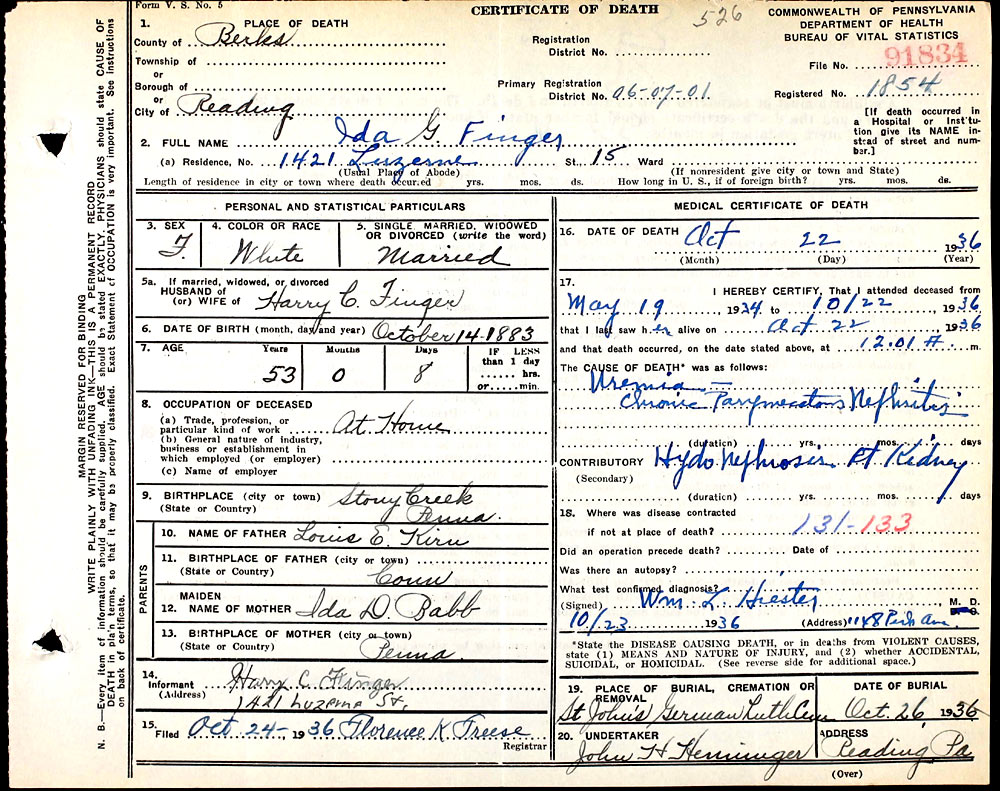 Form V. S. No. 5
CERTIFICATE OF DEATH
526
COMMONWEALTH OF PENNSYLVANIA
DEPARTMENT OF HEALTH
BUREAU OF VITAL STATISTICS
1. PLACE OF DEATH
County of Berks
Township of
or
Borough of
or
City of Reading
Registration
District No.
Primary Registration
District No. 06-07-01
91834
File No.
Registered No. 1854
[If death occurred in
a Hospital or Inst'tu-
tion give its NAME in-
stead of street and num-
ber.]
2. FULL NAME Ida G Finger
(a) Residence, No. 1421 Luzerne St. 15 Ward
(Usual Place of Abode) (If nonresident give city or town and State)
Length of residence in city or town where death occurred yrs. mos. ds. How long in U. S., if of foreign birth? yrs. mos. ds.
PERSONAL AND STATISTICAL PARTICULARS
3. SEX
F.
4. COLOR OR RACE
White
5. SINGLE, MARRIED, WIDOWED
OR DIVORCED (write the word)
Married
5a. If married, widowed, or divorced
HUSBAND of
(or) WIFE of Harry C. Finger
6. DATE OF BIRTH (month, day and year) October 14-1883
7. AGE Years Months Days IF LESS
than 1 day
53 0 8 hrs.
or min.
8. OCCUPATION OF DECEASED
(a) Trade, profession, or
particular kind of work At Home
(b) General nature of industry,
business or establishment in
which employed (or employer)
(c) Name of employer
9. BIRTHPLACE (city or town) Stony Creek
(State or Country) Penna.
PARENTS
10. NAME OF FATHER Louis E. Kirn
11. BIRTHPLACE OF FATHER (city or town)
(State or Country) Conn
MAIDEN
12. NAME OF MOTHER Ida D. Babb
13. BIRTHPLACE OF MOTHER (city or town)
(State or Country) Penna.
14.
Informant Harry C Finger
(Address) 1421 Luzerne St.
15. Filed Oct 24- 1936 Florence K Freese
Registrar
MEDICAL CERTIFICATE OF DEATH
16. DATE OF DEATH Oct 22 1936
(Month) (Day) (Year)
17. I HEREBY CERTIFY, That I attended deceased from
May 19 1934 to 10/22, 1936
that I last saw her alive on Oct 22 1936
and that death occurred, on the date stated above, at 12.01 A m.
The CAUSE OF DEATH* was as follows:
Uremia -
Chronic Parymecatous Nephritis
(duration) yrs. mos. days
CONTRIBUTORY Hydo Nephrosis Rt Kidney
(Secondary)
(duration) yrs. mos. days
18. Where was disease contracted
if not at place of death? 131-133
Did an operation precede death? Date of
Was there an autopsy?
What test confirmed diagnosis?
(Signed) Wm. L. Hiester M. D.
10/23 1936 (Address) 1148 Perk Ave.
*State the DISEASE CAUSING DEATH, or in deaths from VIOLENT CAUSES,
state (1) MEANS AND NATURE OF INJURY, and (2) whether ACCIDENTAL,
SUICIDAL, or HOMICIDAL. (See reverse side for additional space.)
19. PLACE OF BURIAL, CREMATION OR
REMOVAL
St John's German Luth Cem
DATE OF BURIAL
Oct. 26, 1936
20. UNDERTAKER
John H Henninger
ADDRESS
Reading Pa
(Over)
MARGIN RESERVED FOR BINDING
WRITE PLAINLY WITH UNFADING INK—THIS IS A PERMANENT RECORD
N. B.—Every item of information should be carefully supplied. AGE should be stated EXACTLY. PHYSICIANS should state CAUSE OF
DEATH in plain terms, so that it may be properly classified. Exact Statement of OCCUPATION is very important. See instructions
on back of certificate.